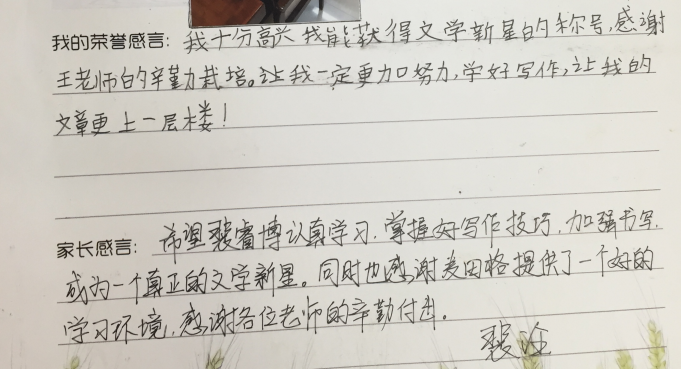 我的荣誉感言：我十分高兴我能获得文学新星的称号，感谢
王老师的辛勤栽培。让我一定更加努力，学好写作，让我的
文章更上一层楼！
家长感言：希望裴睿博认真学习，掌握好写作技巧，加强书写，
成为一个真正的文学新星。同时也感谢麦田格提供了一个好的
学习环境，感谢各位老师的辛勤付出。
裴